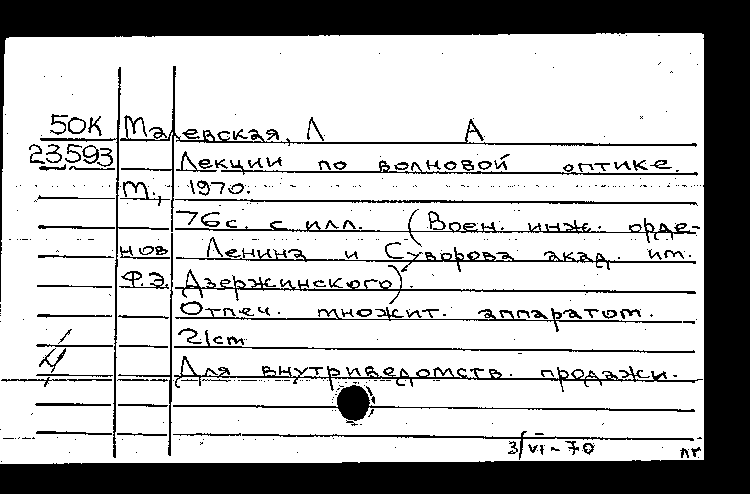 50К Малевская, Л А
23593 Лекции по волновой оптике.
М., 1970.
76с. с илл. (Воен. инж. орде-
нов Ленина и Суворова акад. им.
Ф.Э. Дзержинского).
Отпеч. множит. аппаратом.
21см
Для внутриведомств. продажи.
3/VI-70